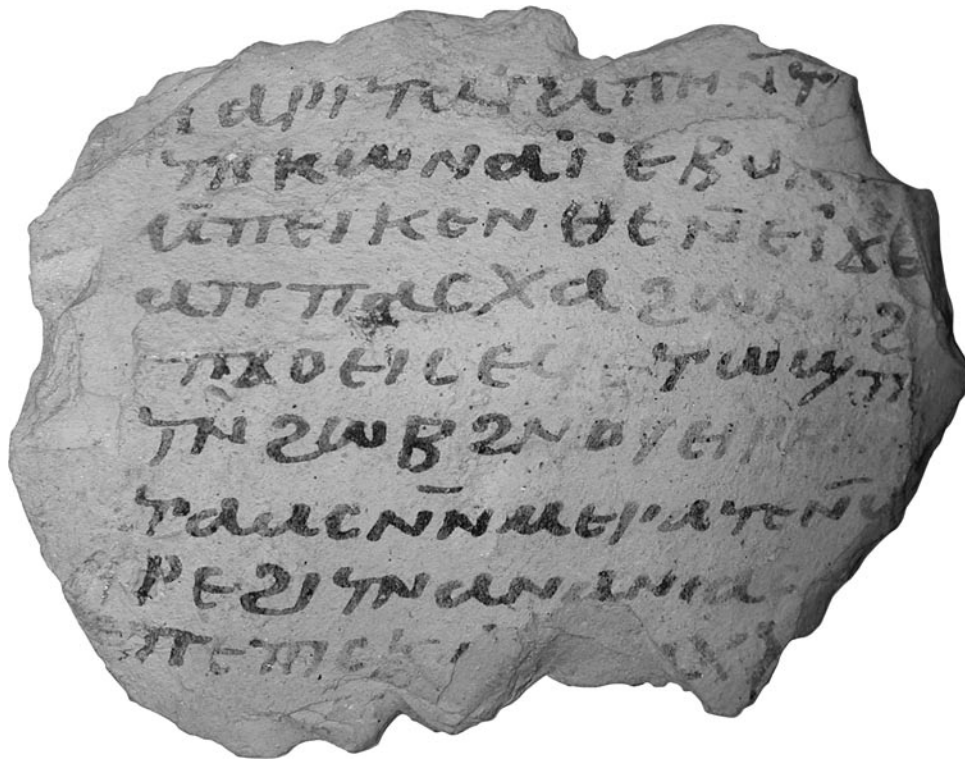 ⲁⲣⲓⲧⲁⲅⲁⲡⲏⲛ̄ⲧ
ⲧⲛⲕⲱⲛⲁⲓ̈ⲉⲃⲟⲗ
ⲙ̄ⲡⲉⲓⲕⲉⲛⲑⲉⲛ̄ⲉⲓ̈ϫⲉ
ⲁⲡⲡⲁⲥⲭⲁϩⲱⲛⲉϩ
ⲡϫⲟⲉⲓⲥⲉ ⲧⲱϣⲡ
ⲧⲛϩⲱⲃϩⲛⲟⲩⲉⲓⲣⲏ
ⲧⲁⲁⲥⲛⲛ̄ⲙⲉⲣⲁⲧⲉⲛ̄ϣ
ⲣⲉϩⲓⲧⲛⲁⲛⲁⲛⲓⲁ
ⲡⲉⲡⲓⲥⲕ